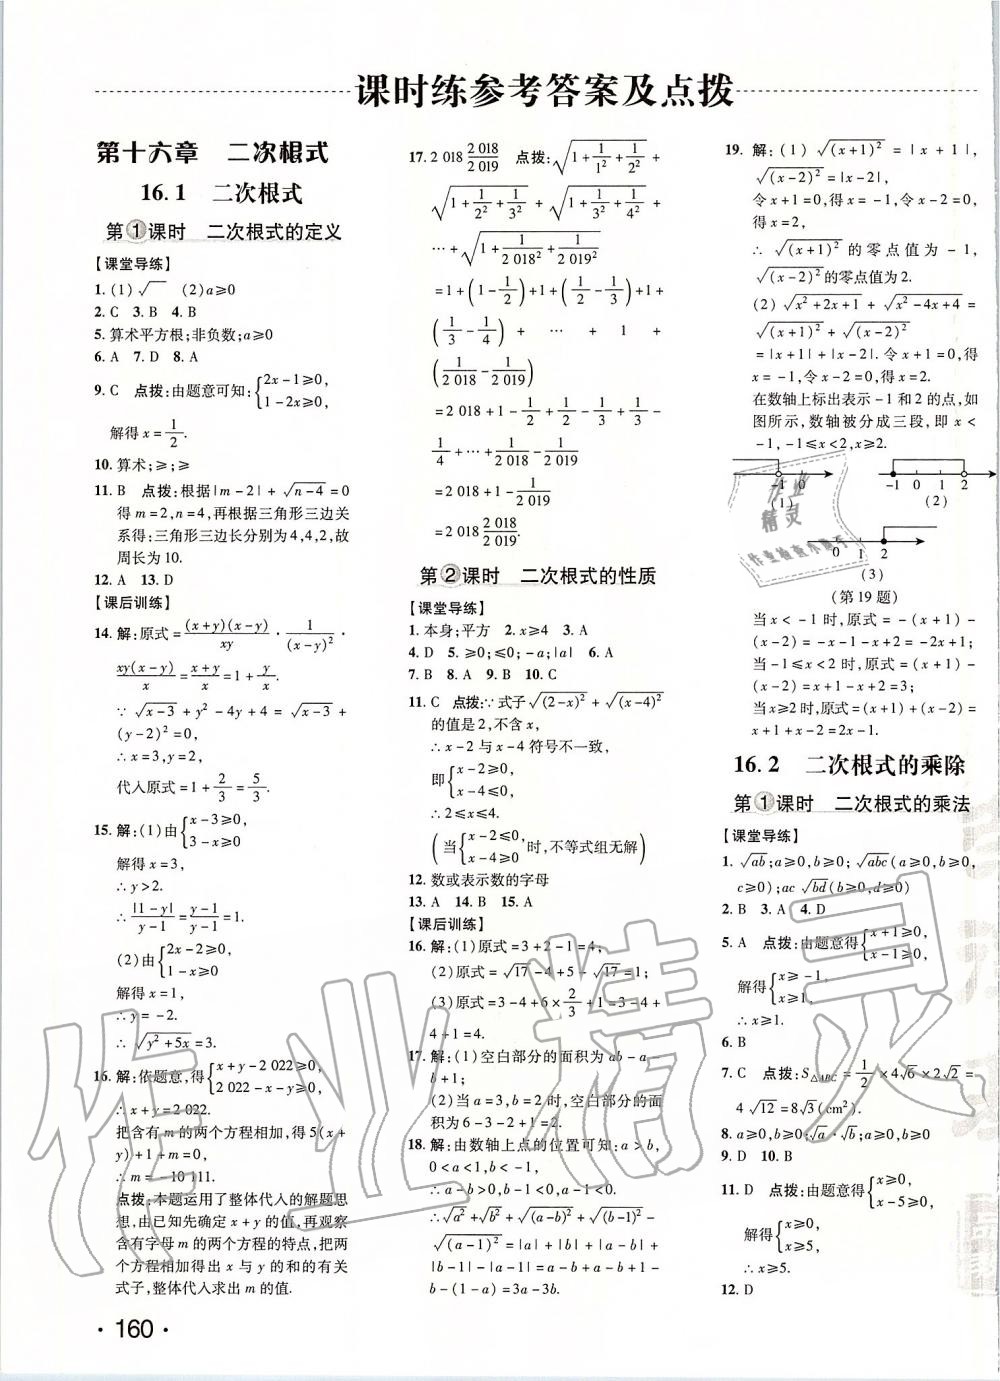 课时练参考答案及点拨
第十六章 二次根式
16.1 二次根式
第1课时 二次根式的定义
【课堂导练】
1. (1) √ (2) a≥0
2. C 3. B 4. B
5. 算术平方根;非负数;a≥0
6. A 7. D 8. A
9. C 点拨:由题意可知:{2x-1≥0, 1-2x≥0,
解得 x=1/2.
10. 算术;≥;≥
11. B 点拨:根据|m-2|+√(n-4)=0
得 m=2,n=4,再根据三角形三边关
系得:三角形三边长分别为4,4,2,故
周长为10.
12. A 13. D
【课后训练】
14. 解:原式=(x+y)(x-y)/xy · 1/(x-y)² ·
xy(x-y)/x=(x+y)/x=1+y/x.
∵√(x-3)+y²-4y+4=√(x-3)+
(y-2)²=0,
∴x=3,y=2,
代入原式=1+2/3=5/3.
15. 解:(1)由{x-3≥0, 3-x≥0
解得 x=3,
∴y>2.
∴|1-y|/(y-1)=(y-1)/(y-1)=1.
(2)由{2x-2≥0, 1-x≥0
解得 x=1,
∴y=-2.
∴√(y²+5x)=3.
16. 解:依题意,得{x+y-2 022≥0, 2 022-x-y≥0,
∴x+y=2 022.
把含有 m 的两个方程相加,得5(x+
y)+1+m=0,
∴m=-10 111.
点拨:本题运用了整体代入的解题思
想,由已知先确定 x+y 的值,再观察
含有字母 m 的两个方程的特点,把两
个方程相加得出 x 与 y 的和的有关
式子,整体代入求出 m 的值.
·160·
17. 2 018 2 018/2 019 点拨:√(1+1/1²+1/2²)+
√(1+1/2²+1/3²)+√(1+1/3²+1/4²)+
…+√(1+1/2 018²+1/2 019²)
=1+(1-1/2)+1+(1/2-1/3)+1+
(1/3-1/4)+…+1+
(1/2 018-1/2 019)
=2 018+1-1/2+1/2-1/3+1/3-
1/4+…+1/2 018-1/2 019
=2 018+1-1/2 019
=2 018 2 018/2 019.
第2课时 二次根式的性质
【课堂导练】
1. 本身;平方 2. x≥4 3. A
4. D 5. ≥0;≤0;-a;|a| 6. A
7. B 8. A 9. B 10. C
11. C 点拨:∵式子√(2-x)²+√(x-4)²
的值是2,不含 x,
∴x-2与 x-4符号不一致,
即{x-2≥0, x-4≤0,
∴2≤x≤4.
(当{x-2≤0, x-4≥0时,不等式组无解)
12. 数或表示数的字母
13. A 14. B 15. A
【课后训练】
16. 解:(1)原式=3+2-1=4;
(2)原式=√17-4+5-√17=1;
(3)原式=3-4+6×2/3+1=3-4+
4+1=4.
17. 解:(1)空白部分的面积为 ab-a-
(2)当 a=3,b=2时,空白部分的面
积为6-3-2+1=2.
18. 解:由数轴上点的位置可知:a>b,
0<a<1,b<-1,
∴a-b>0,b-1<0,a-1<0.
∴√a²+√b²+√(a-b)²-√(b-1)²-
√(a-1)²=|a|+|b|+|a-b|-
|b-1|-|a-1|=a-b+a-b+b-1-
(1-a)=3a-b-2.
19. 解:(1)√(x+1)²=|x+1|,
√(x-2)²=|x-2|,
令 x+1=0,得 x=-1,令 x-2=0,
得 x=2,
∴√(x+1)²的零点值为-1,
√(x-2)²的零点值为2.
(2)√(x²+2x+1)+√(x²-4x+4)=
√(x+1)²+√(x-2)²
=|x+1|+|x-2|.令 x+1=0,得
x=-1,令 x-2=0,得 x=2.
在数轴上标出表示-1和2的点,如
图所示,数轴被分成三段,即 x<
-1,-1≤x<2,x≥2.
-1 0
(1)
-1 0 1 2
(2)
0 1 2
(3)
(第19题)
当 x<-1时,原式=-(x+1)-
(x-2)=-x-1-x+2=-2x+1;
当-1≤x<2时,原式=(x+1)-
(x-2)=x+1-x+2=3;
当 x≥2时,原式=(x+1)+(x-2)=
x+1+x-2=2x-1.
16.2 二次根式的乘除
第1课时 二次根式的乘法
【课堂导练】
1. √ab;a≥0,b≥0;√abc(a≥0,b≥0,
c≥0);ac√bd(b≥0,d≥0)
2. B 3. A 4. D
5. A 点拨:由题意得{x+1≥0, x-1≥0,
解得{x≥-1, x≥1.
∴x≥1.
6. B
7. C 点拨:S△ABC=1/2×4√6×2√2=
4√12=8√3(cm²).
8. a≥0,b≥0;√a·√b;a≥0,b≥0
9. D 10. B
11. D 点拨:由题意得{x≥0, x-5≥0,
解得{x≥0, x≥5.
∴x≥5.
12. D
作业精灵
作业
精灵
作业检查小助手